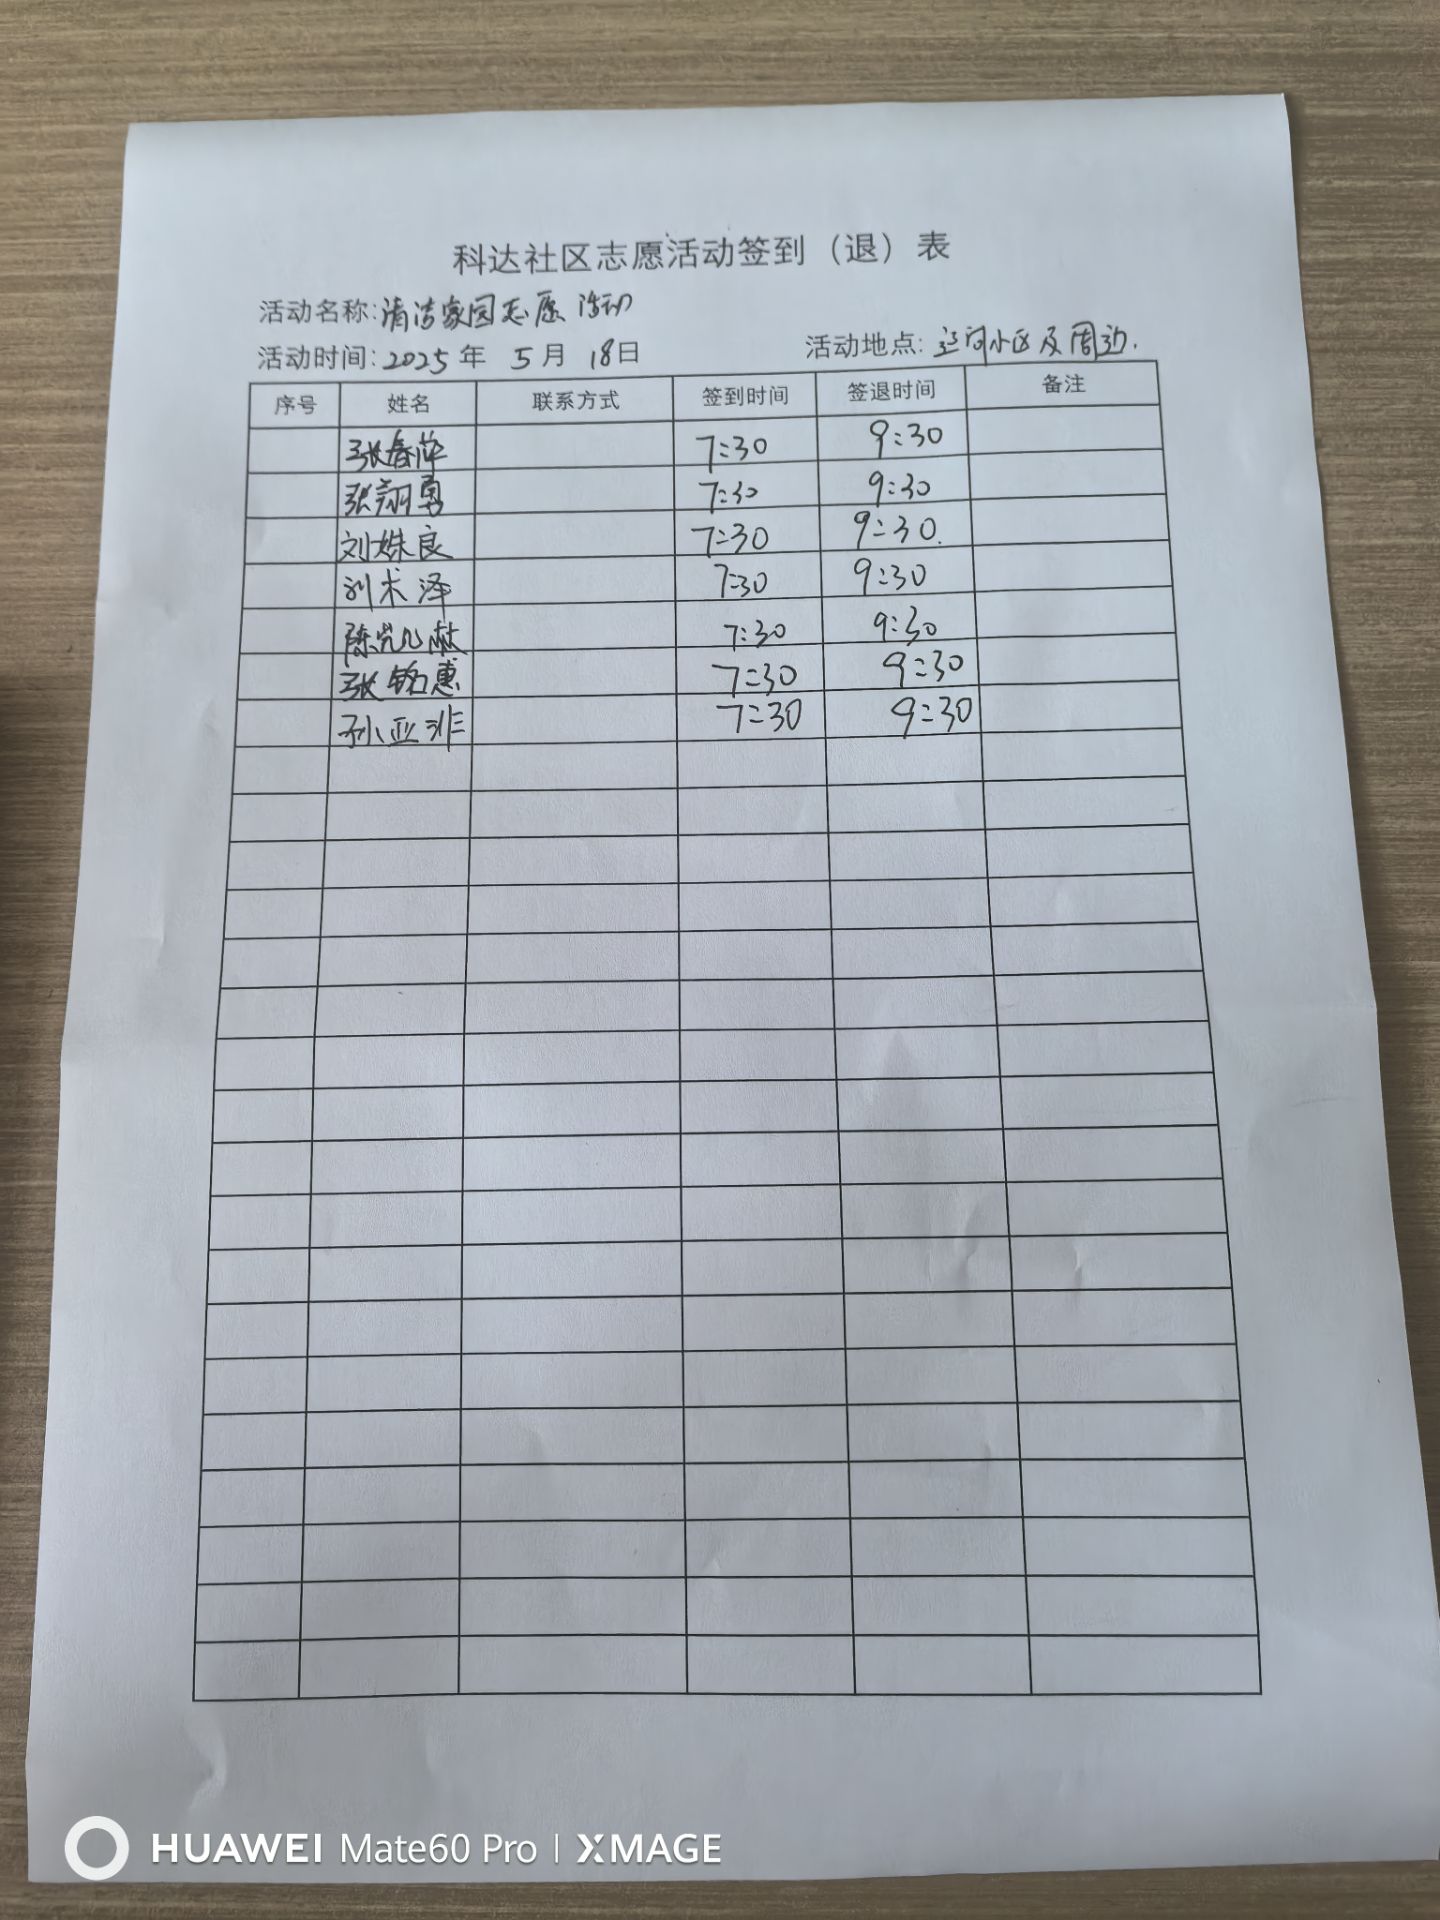 科达社区志愿活动签到（退）表
活动名称:清洁家园志愿活动
活动时间:2025年 5月 18日 活动地点:运河小区及周边.
序号 姓名 联系方式 签到时间 签退时间 备注
张春萍 7:30 9:30
张翔勇 7:30 9:30
刘姝良 7:30 9:30.
刘术泽 7:30 9:30
陈 7:30 9:30
张铭惠 7:30 9:30
孙亚非 7:30 9:30
HUAWEI Mate60 Pro | XMAGE